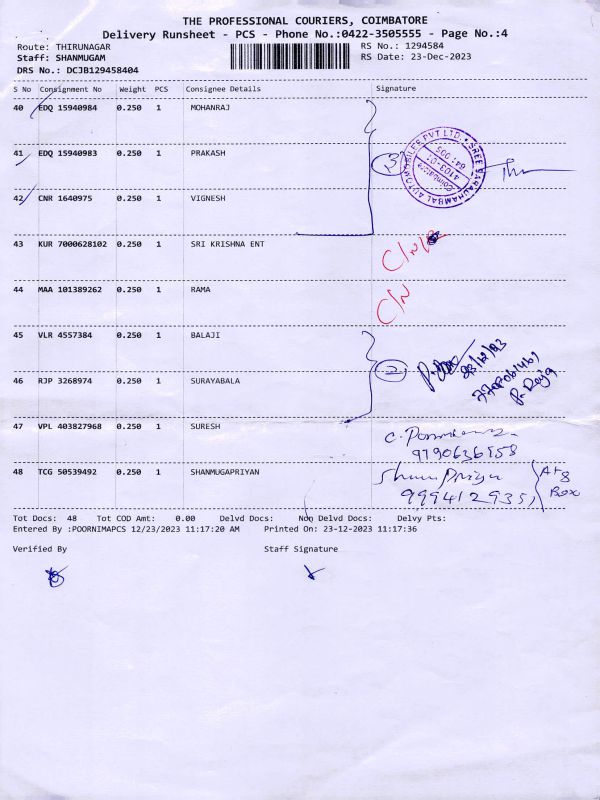 THE PROFESSIONAL COURIERS, COIMBATORE
Delivery Runsheet - PCS - Phone No.:0422-3505555 - Page No.:4
Route: THIRUNAGAR
RS No.: 1294584
Staff: SHANMUGAM
RS Date: 23-Dec-2023
DRS No.: DCJB129458404
S No Consignment No Weight PCS Consignee Details Signature
40 EDQ 15940984 0.250 1 MOHANRAJ
41 EDQ 15940983 0.250 1 PRAKASH
3
SREE SARADHAMBAL AUTOMOBILES PVT LTD.
Coimbatore
641 005
42 CNR 1640975 0.250 1 VIGNESH
43 KUR 7000628102 0.250 1 SRI KRISHNA ENT
C/N
44 MAA 101389262 0.250 1 RAMA
C/N
45 VLR 4557384 0.250 1 BALAJI
46 RJP 3268974 0.250 1 SURAYABALA
2
23/12/23
P. Raja
47 VPL 403827968 0.250 1 SURESH
9790636958
48 TCG 50539492 0.250 1 SHANMUGAPRIYAN
9994129351
Box
Tot Docs: 48 Tot COD Amt: 0.00 Delvd Docs: Non Delvd Docs: Delvy Pts:
Entered By :POORNIMAPCS 12/23/2023 11:17:20 AM Printed On: 23-12-2023 11:17:36
Verified By Staff Signature